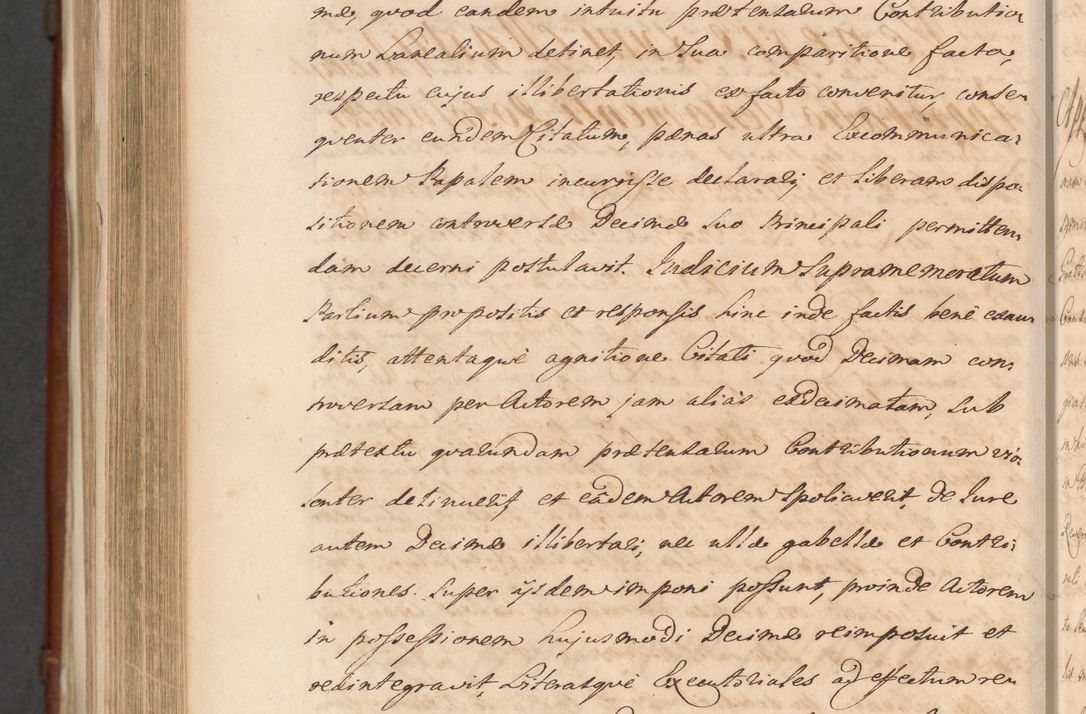 mæ, quod eandem intuitu prætensarum Contributio:
num Lanealium detinet, in Sua comparitione facta,
respectu cujus illibertationis ex facto convenitur, conse:
quenter eundem Citatum, pænas ultra Excommunica:
tionem Papalem incurrisse declarari, et liberam dispo:
sitionem controversæ Decimæ suo Principali permitten:
dam decerni postulavit. Judicium Supramemoratum
Partium propositis et responsis hinc inde factis benè exau:
ditis, attentaquè agnitione Citati quod Decimam con:
troversam per Actorem jam alias exdecimatam, sub
prætextu quarundam prætensarum Contributionum vio:
lenter detinuerit et eâdem Actorem spoliaverit, de Jure
autem Decimæ illibertari, nec ullæ gabellæ et Contri:
butiones super ijsdem imponi possunt, proinde Actorem
in possessionem hujusmodi Decimæ reimposuit et
redintegravit, Literasquè Executoriales ad effectum re: